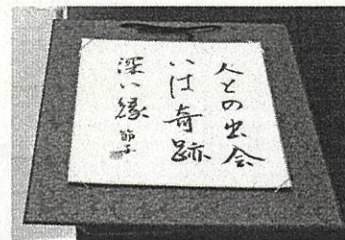 人との出会
いは奇跡
深い縁 節子